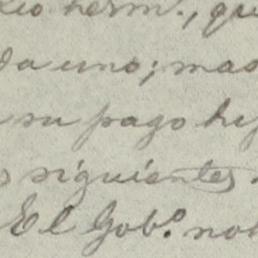 herm., qu
da uno; mas
su pago he
siguientes
El Gob.º no